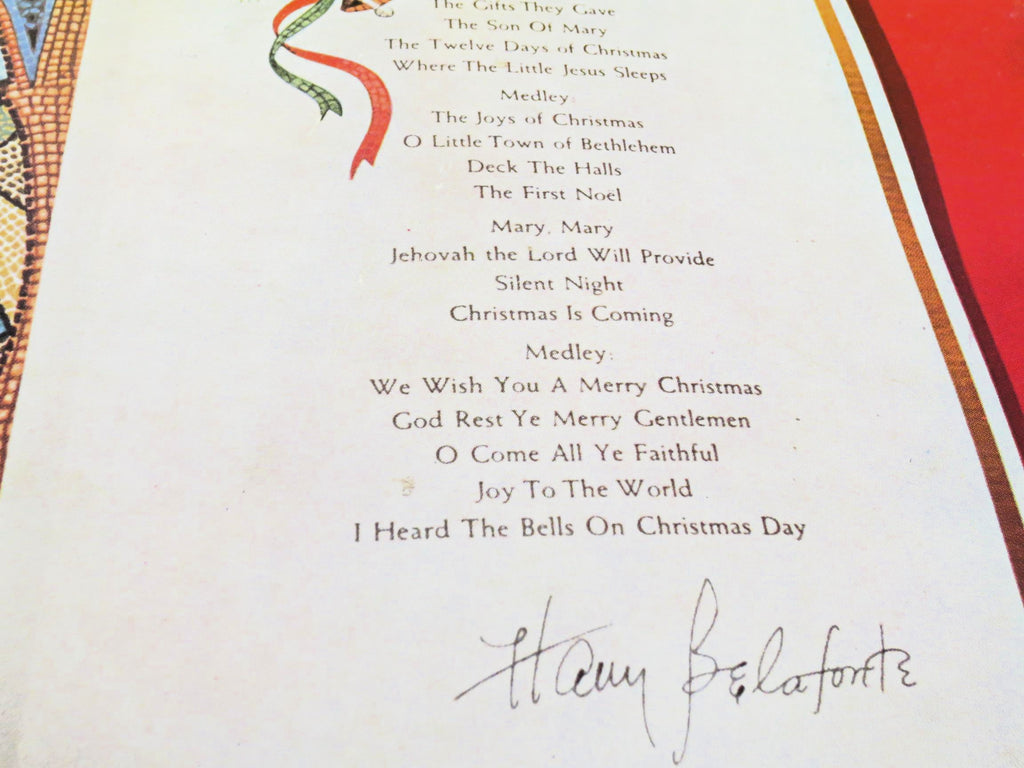 The Gifts They Gave
The Son Of Mary
The Twelve Days of Christmas
Where The Little Jesus Sleeps
Medley:
The Joys of Christmas
O Little Town of Bethlehem
Deck The Halls
The First Noël
Mary, Mary
Jehovah the Lord Will Provide
Silent Night
Christmas Is Coming
Medley:
We Wish You A Merry Christmas
God Rest Ye Merry Gentlemen
O Come All Ye Faithful
Joy To The World
I Heard The Bells On Christmas Day
Harry Belafonte